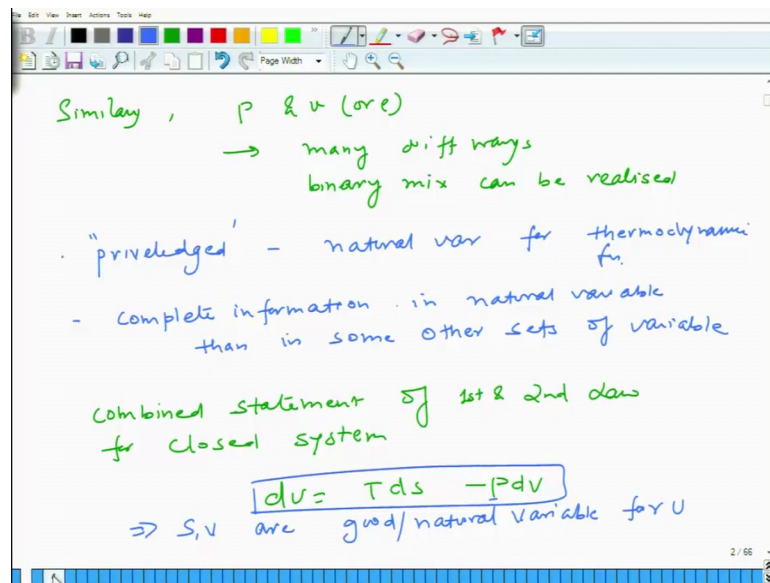 File Edit View Insert Actions Tools Help
B I
Page Width
Similary , P & v (or e)
→ many diff ways
binary mix can be realised
"priveledged" - natural var for thermodynami
fn.
- complete information in natural variable
than in some other sets of variable
combined statement of 1st & 2nd Law
for closed system
dU = Tds - Pdv
⇒ S,V are good/natural variable for U
2 / 66